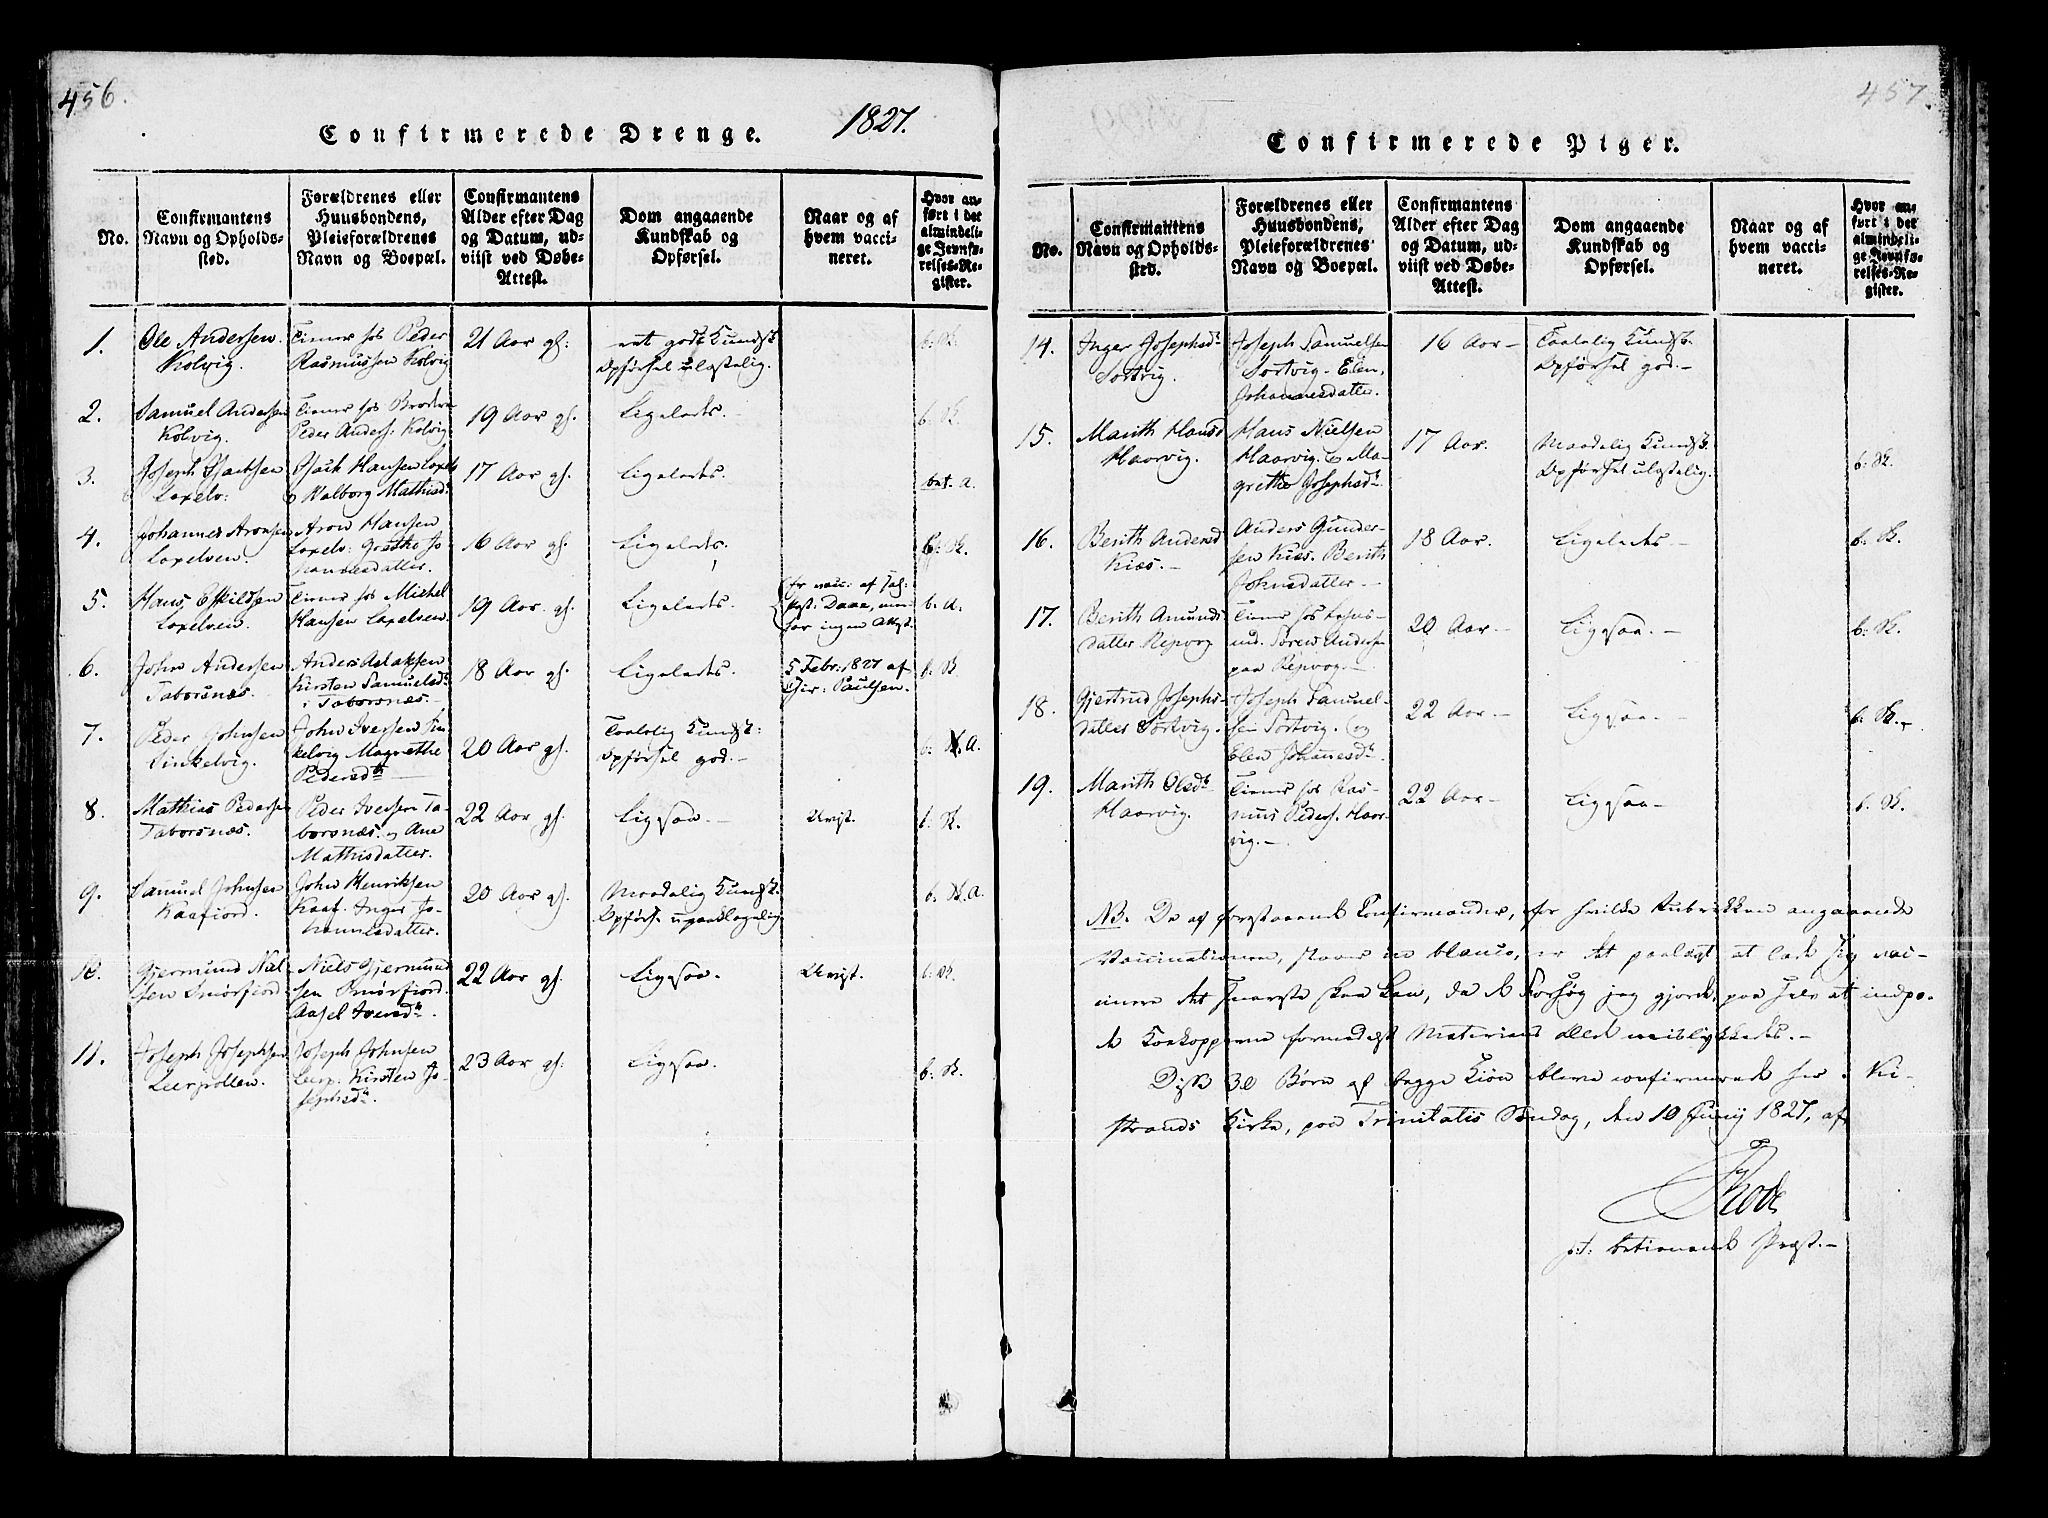 456.
Confirmerede Drenge. 1827.
No.
Confirmantens
Navn og Opholds-
sted.
Forældrenes eller
Huusbondens,
Pleieforældrenes
Navn og Boepæl.
Confirmantens
Alder efter Dag
og Datum, ud-
viist ved Døbe-
Attest.
Dom angaaende
Kundskab og
Opførsel.
Naar og af
hvem vacci-
neret.
Hvor an-
ført i det
almindeli-
ge Jevnfø-
relses-Re-
gister.
1.
Ole Andersen
Kolvig.
Tiener hos Peder
Rasmussen Kolvig
21 Aar gl:
ret godt Kundsk:
Opførsel ulastelig.
b: K.
2.
Samuel Andersen
Kolvig.
Tiener hos Broderen
Peder Anders: Kolvig
19 Aar gl.
Ligeledes.
b. K.
3.
Joseph Isachsen
Laxelv:
Isach Hansen Laxelv
o Valborg Mathisd:
17 Aar gl.
Ligeledes.
bet. A.
4.
Johannes Aronsen
Laxelven.
Aron Hansen
Laxelv: Grethe Jo-
hannesdatter.
16 Aar gl.
Ligeledes.
b: K.
5.
Hans Eskildsen
Laxelven.
Tiener hos Michel
Hansen Laxelven.
19 Aar gl.
Ligeledes.
Er vac: af Sal:
Præst: Daae, men
har ingen Attest.
b. A.
6.
John Andersen
Taborsnæs.
Anders Aslaksen
Kirsten Samuelsd:
i Taborsnæs.
18 Aar gl.
Ligeledes.
5 Febr: 1827 af
Chir: Paulsen.
b. K
7.
Peder Johnsen
Sinkelvig.
John Iversen Sin-
kelvig Magrethe
Pedersdtr
20 Aar gl.
Taalelig Kundsk:
Opførsel god.-
b. A.
8.
Mathias Pedersen
Taborsnæs.
Peder Iversen Ta-
borsnæs. og Ane
Mathisdatter.
22 Aar gl.
Ligesaa.-
Uvist.
b. K.
9.
Samuel Johnsen
Kaafiord.
John Henriksen
Kaaf. Inger Jo-
hannesdatter.
20 Aar gl.
Maadelig Kundsk:
Opførs. upaaklagelig
b. A.
10.
Gjermund Niel-
sen Smørfiord.
Niels Gjermund
sen Smørfiord.
Aasel Iversd:
22 Aar gl.
Ligesaa.
Uvist.
b: K.
11.
Joseph Josephsen
Leerpollen.
Joseph Johnsen
Leerp: Kirsten Jo-
sephsd:
23 Aar gl:
Ligesaa.
b. K.
457.
Confirmerede Piger.
No.
Confirmantens
Navn og Opholds-
sted.
Forældrenes eller
Huusbondens,
Pleieforældrenes
Navn og Boepæl.
Confirmantens
Alder efter Dag
og Datum, ud-
viist ved Døbe-
Attest.
Dom angaaende
Kundskab og
Opførsel.
Naar og af
hvem vacci-
neret.
Hvor an-
ført i det
almindeli-
ge Jevnfø-
relses-Re-
gister.
14.
Inger Josephsd:
Sortvig.
Joseph Samuelsen
Sortvig. Elen,
Johannesdatter.
16 Aar-
Taalelig Kundsk.
Opførsel god.-
15.
Marith Hansd
Haarvig.
Hans Nielsen
Haarvig. o Ma-
grethe Josephsd:
17 Aar.
Maadelig Kundsk:
Opførsel ulastelig.
b: K.
16.
Berith Andersd
Kiæs.-
Anders Gunder-
sen Kiæs. Berith
Johnsdatter-
18 Aar.
Ligeledes-
b: K.
17.
Berith Amunds
datter Repvog
Tiener hos Lehns-
md. Søren Andersen
paa Repvog.-
20 Aar-
Ligesaa.-
b: K.
18.
Gjertrud Josephs-
datter Sortvig.
Joseph Samuel-
sen Sortvig. og
Elen Johanesd:
22 Aar-
Ligesaa.-
b: K.
19.
Marith Olsd:
Haarvig.
Tiener hos Ras-
mus Peders: Haar-
vig.-
22 Aar-
Ligesaa-
b: K.
NB. De af forstaaende Confirmander, for hvilke Rubrikken angaaende
Vaccinationen, staaer in blanco, er det paalagt at lade sig vac-
cinere det snareste skee kan, da de Forsøg jeg gjorde paa selv at indpo-
de Koekopperne formedelst Materiens Ælde mislykkedes.-
Disse 30 Børn af begge Kiøn bleve confirmerede her i Ki-
strands Kirke, paa Trinitatis Søndag, den 10 Junij 1827, af
Rode
p.t. betienende Præst.-